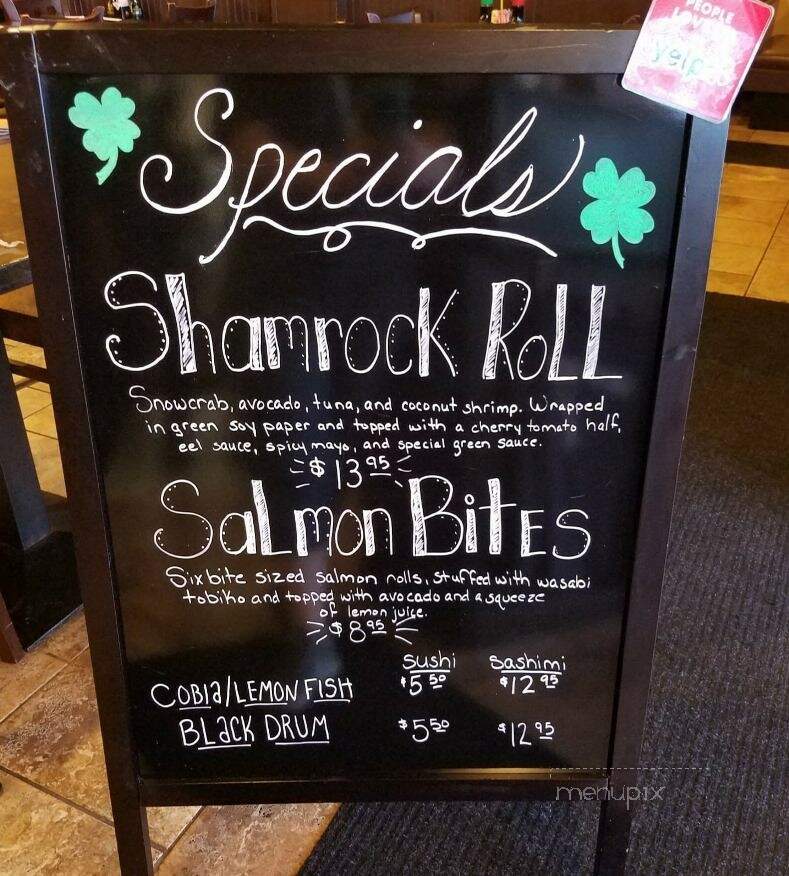 PEOPLE
LOVE
yelp
Specials
Shamrock Roll
Snowcrab, avocado, tuna, and coconut shrimp. Wrapped
in green soy paper and topped with a cherry tomato half,
eel sauce, spicy mayo, and special green sauce.
$13.95
Salmon Bites
Six bite sized salmon rolls, stuffed with wasabi
tobiko and topped with avocado and a squeeze
of lemon juice.
$8.95
Sushi Sashimi
COBIa/LEMON FISH $5.50 $12.95
BLacK DRUM $5.50 $12.95
menupix